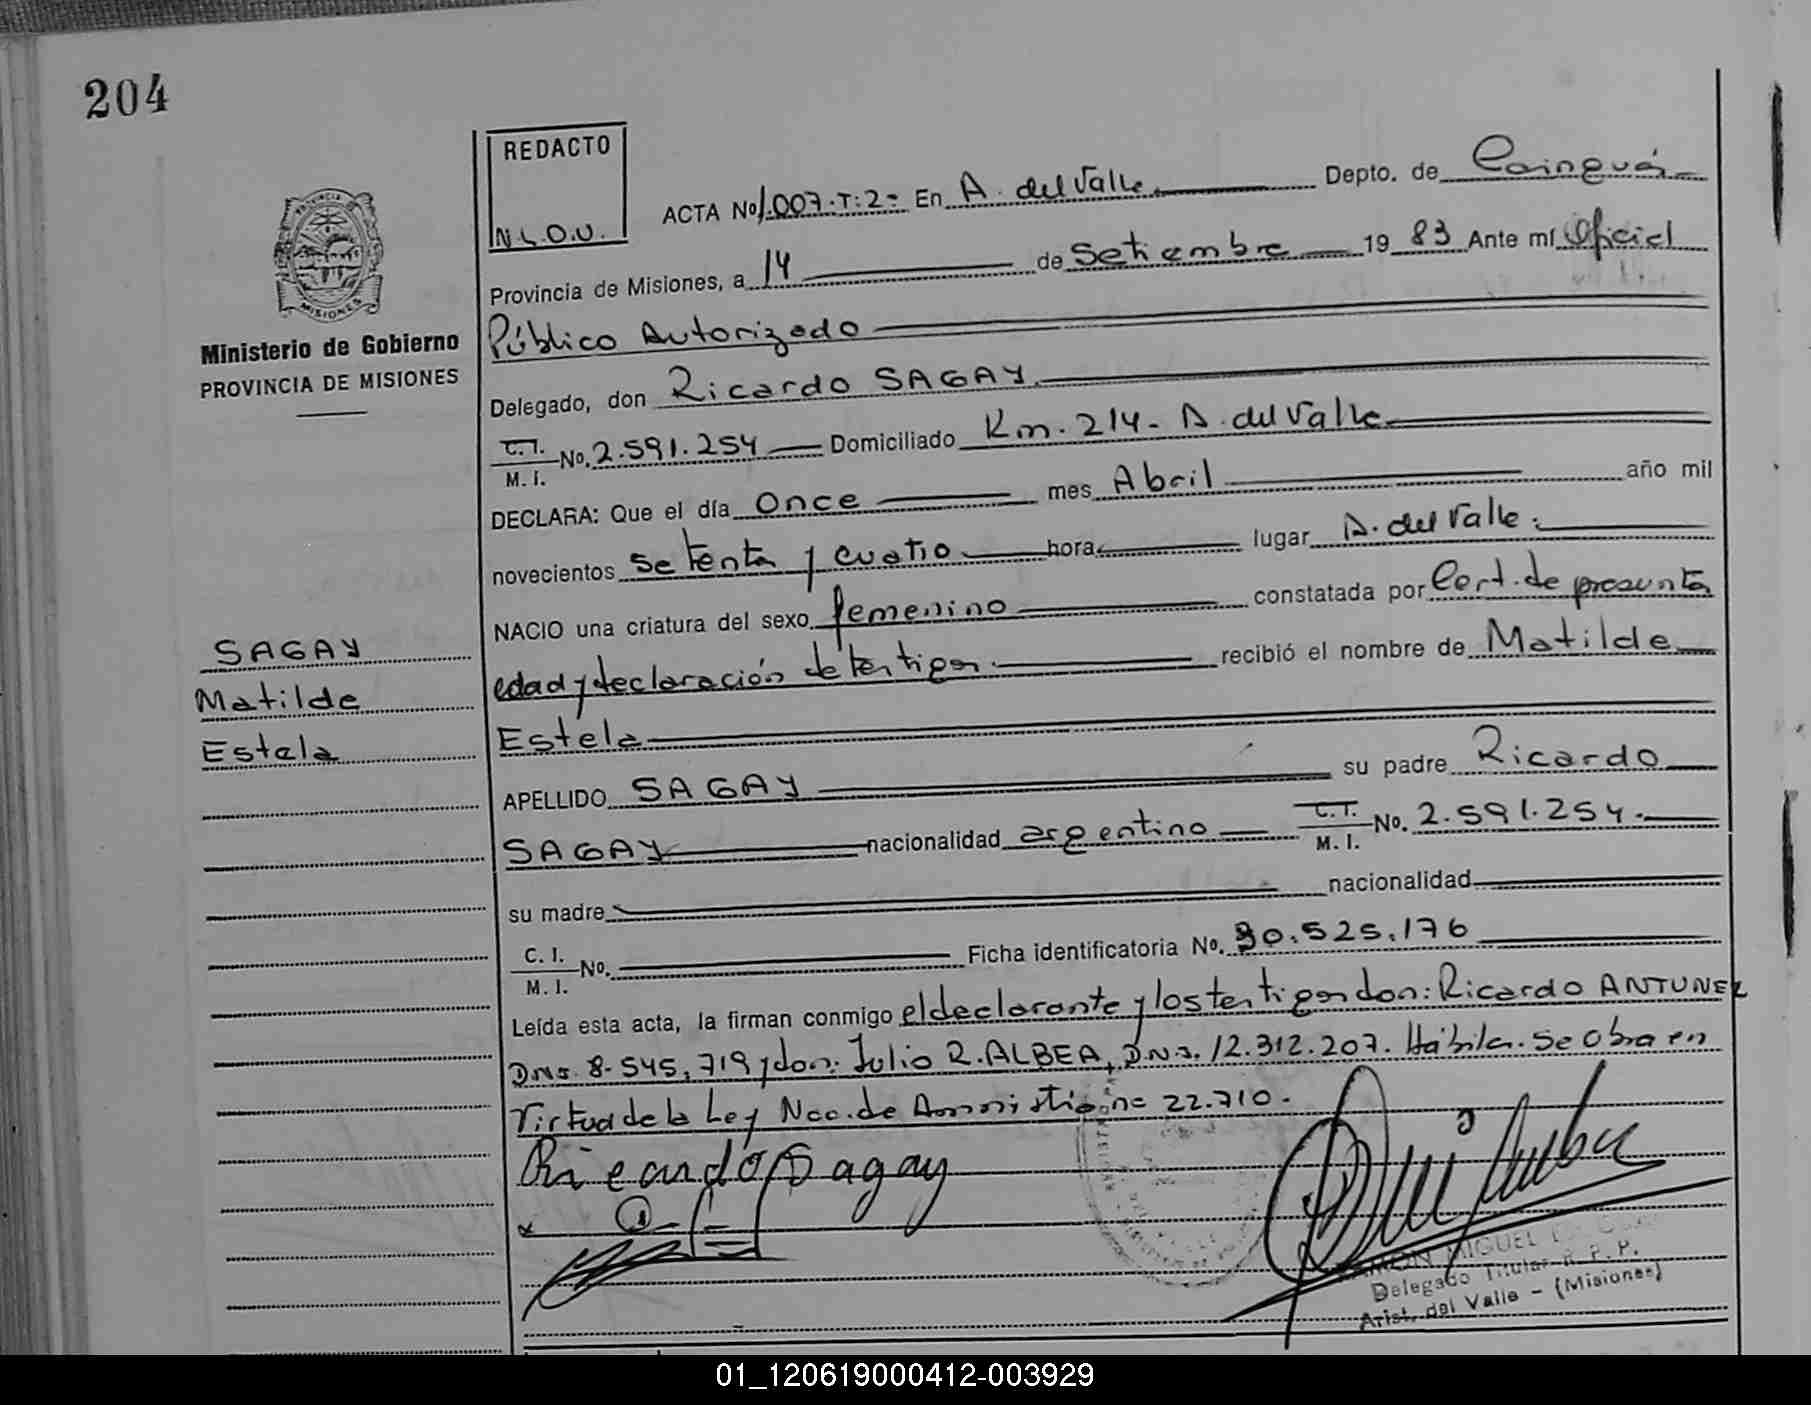 204
REDACTO
N.L.O.U.
ACTA No 1.007-T:2- En A. del Valle Depto. de Cainguás
Provincia de Misiones, a 14 de Setiembre 19 83 Ante mí Oficial
Público Autorizado
PROVINCIA DE
MISIONES
Ministerio de Gobierno
PROVINCIA DE MISIONES
Delegado, don Ricardo SAGAY
C.I. M.I. No. 2.591.254 Domiciliado Km. 214- A. del Valle
DECLARA: Que el día Once mes Abril año mil
novecientos setenta y cuatro hora lugar A. del Valle.
NACIO una criatura del sexo femenino constatada por Cert. de presunta
edad y declaración de testigos. recibió el nombre de Matilde
Estela
APELLIDO SAGAY su padre Ricardo
SAGAY nacionalidad argentino C.I. M.I. No. 2.591.254.
su madre nacionalidad
C.I. M.I. No. Ficha identificatoria No. 30.525.176
Leída esta acta, la firman conmigo el declarante y los testigos don: Ricardo ANTUNEZ
D.N.I. 8.545.719 y don: Julio R. ALBEA, D.N.I. 12.312.207. Hábiles. Se Obra en
Virtud de la Ley Nac. de Amnistía no 22.710.
Ricardo Sagay
SAGAY
Matilde
Estela
MIGUEL
Delegado Titular R.P.P.
Arist. del Valle - (Misiones)
01_120619000412-003929